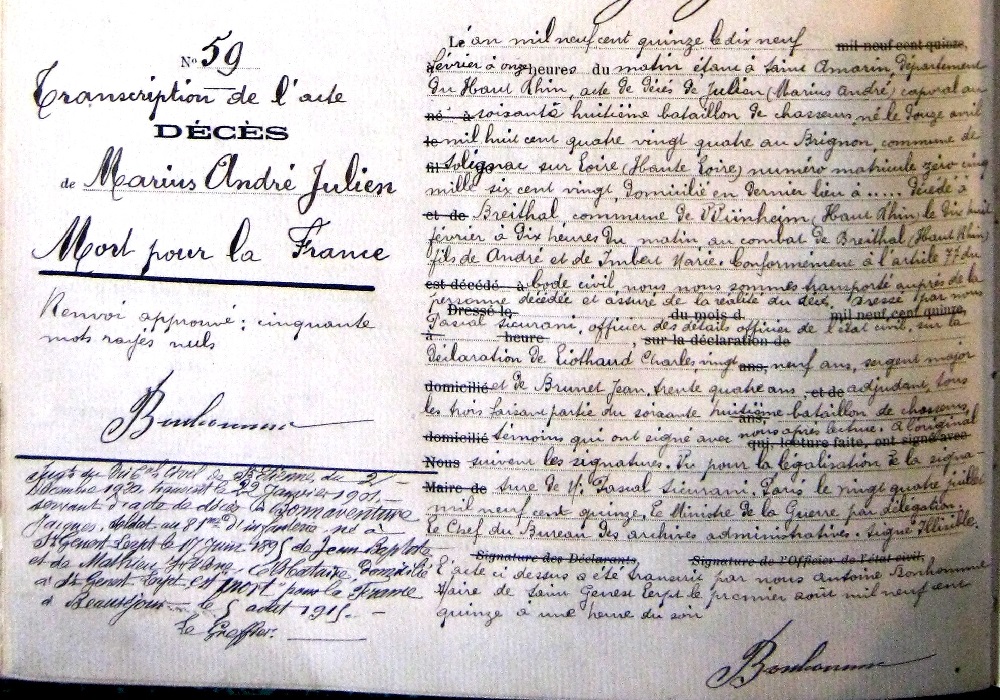 N° 59
Transcription de l'acte
DÉCÈS
de Marius André Julien
Mort pour la France
Renvoi approuvé ; cinquante
mots rayés nuls
Bonhomme
St Etienne, du 2
transcrit le 22 janvier 1901,
servant d'acte de décès à Bonaventure
Jacques, soldat au 81me d'infanterie né à
St Genest Lerpt le 17 Juin 1895 de Jean Baptiste
et de Mathieu domicilié
à St Genest Lerpt est "mort" pour la France
à Beauséjour le 5 août 1915.
Le Greffier.
L'an mil neuf cent quinze le dix neuf mil neuf cent quinze,
février à onze heures du matin étant à Saint Amarin, département
du Haut Rhin, acte de décès de Julien (Marius André) caporal au
né à soixante huitième bataillon de chasseurs, né le douze avril
le mil huit cent quatre vingt quatre au Brignon, commune de
Solignac sur Loire (Haute Loire) numéro matricule zéro cinq
mille six cent vingt, domicilié en dernier lieu à ... décédé à
et de Breithal, commune de (Haut Rhin) le dix huit
février à dix heures du matin au combat de Breithal (Haut Rhin)
fils de André et de Imbert Marie. Conformément à l'article 77 du
est décédé à code civil, nous nous sommes transporté auprès de la
personne décédée et assuré de la réalité du décès, dressé par nous
Dressé le du mois d mil neuf cent quinze,
Pascal Sicurani, officier des détails officier de l'état civil, sur la
à heure , sur la déclaration de
déclaration de Liothaud Charles, vingt ans, neuf ans, sergent major
domicilié et de Brunet Jean, trente quatre ans, et de adjudant, tous
les trois faisant partie du soixante huitième bataillon de chasseurs,
ans,
domicilié témoins qui ont signé avec nous après lecture. A l'original
qui, lecture faite, ont signé avec
Nous suivent les signatures. Vu pour la légalisation de la signa
Maire de ture de M. Pascal Sicurani. Paris le vingt quatre juillet
mil neuf cent quinze. Le Ministre de la Guerre par délégation
Le Chef du Bureau des archives administratives. Signé Illisible.
Signature des Déclarants Signature de l'Officier de l'état civil,
L'acte ci dessus a été transcrit par nous Antoine Bonhomme
Maire de Saint Genest Lerpt le premier août mil neuf cent
quinze à une heure du soir
Bonhomme